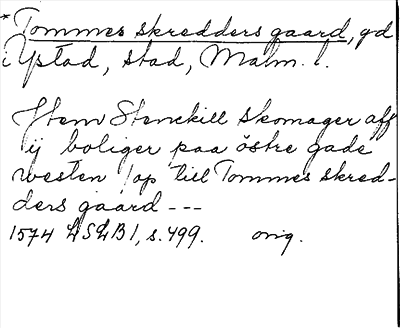 * Tommes skredders gaard, gd
i Ystad, stad, Malm. l.
Item Stenckill skomager aff
ij boliger paa östre gade
westen op till Tommes skred-
ders gaard ---
1574 LSLB1, s. 499. orig.